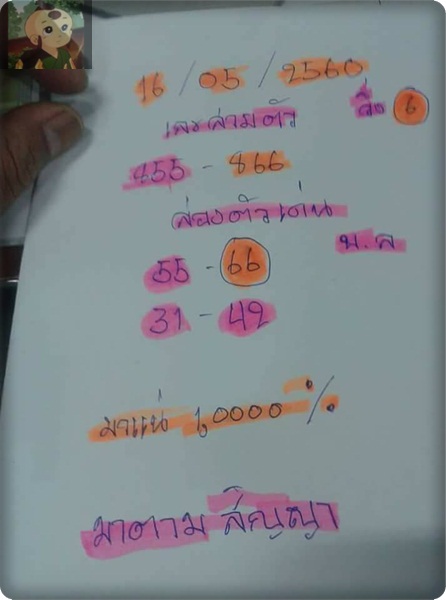 16 / 05 / 2560
เลขสามตัว วิ่ง 6
455 - 866
สองตัวเด่น
บ.ล
55 - 66
31 - 42
มาแน่ 1,0000 %
มาตาม สัญญา